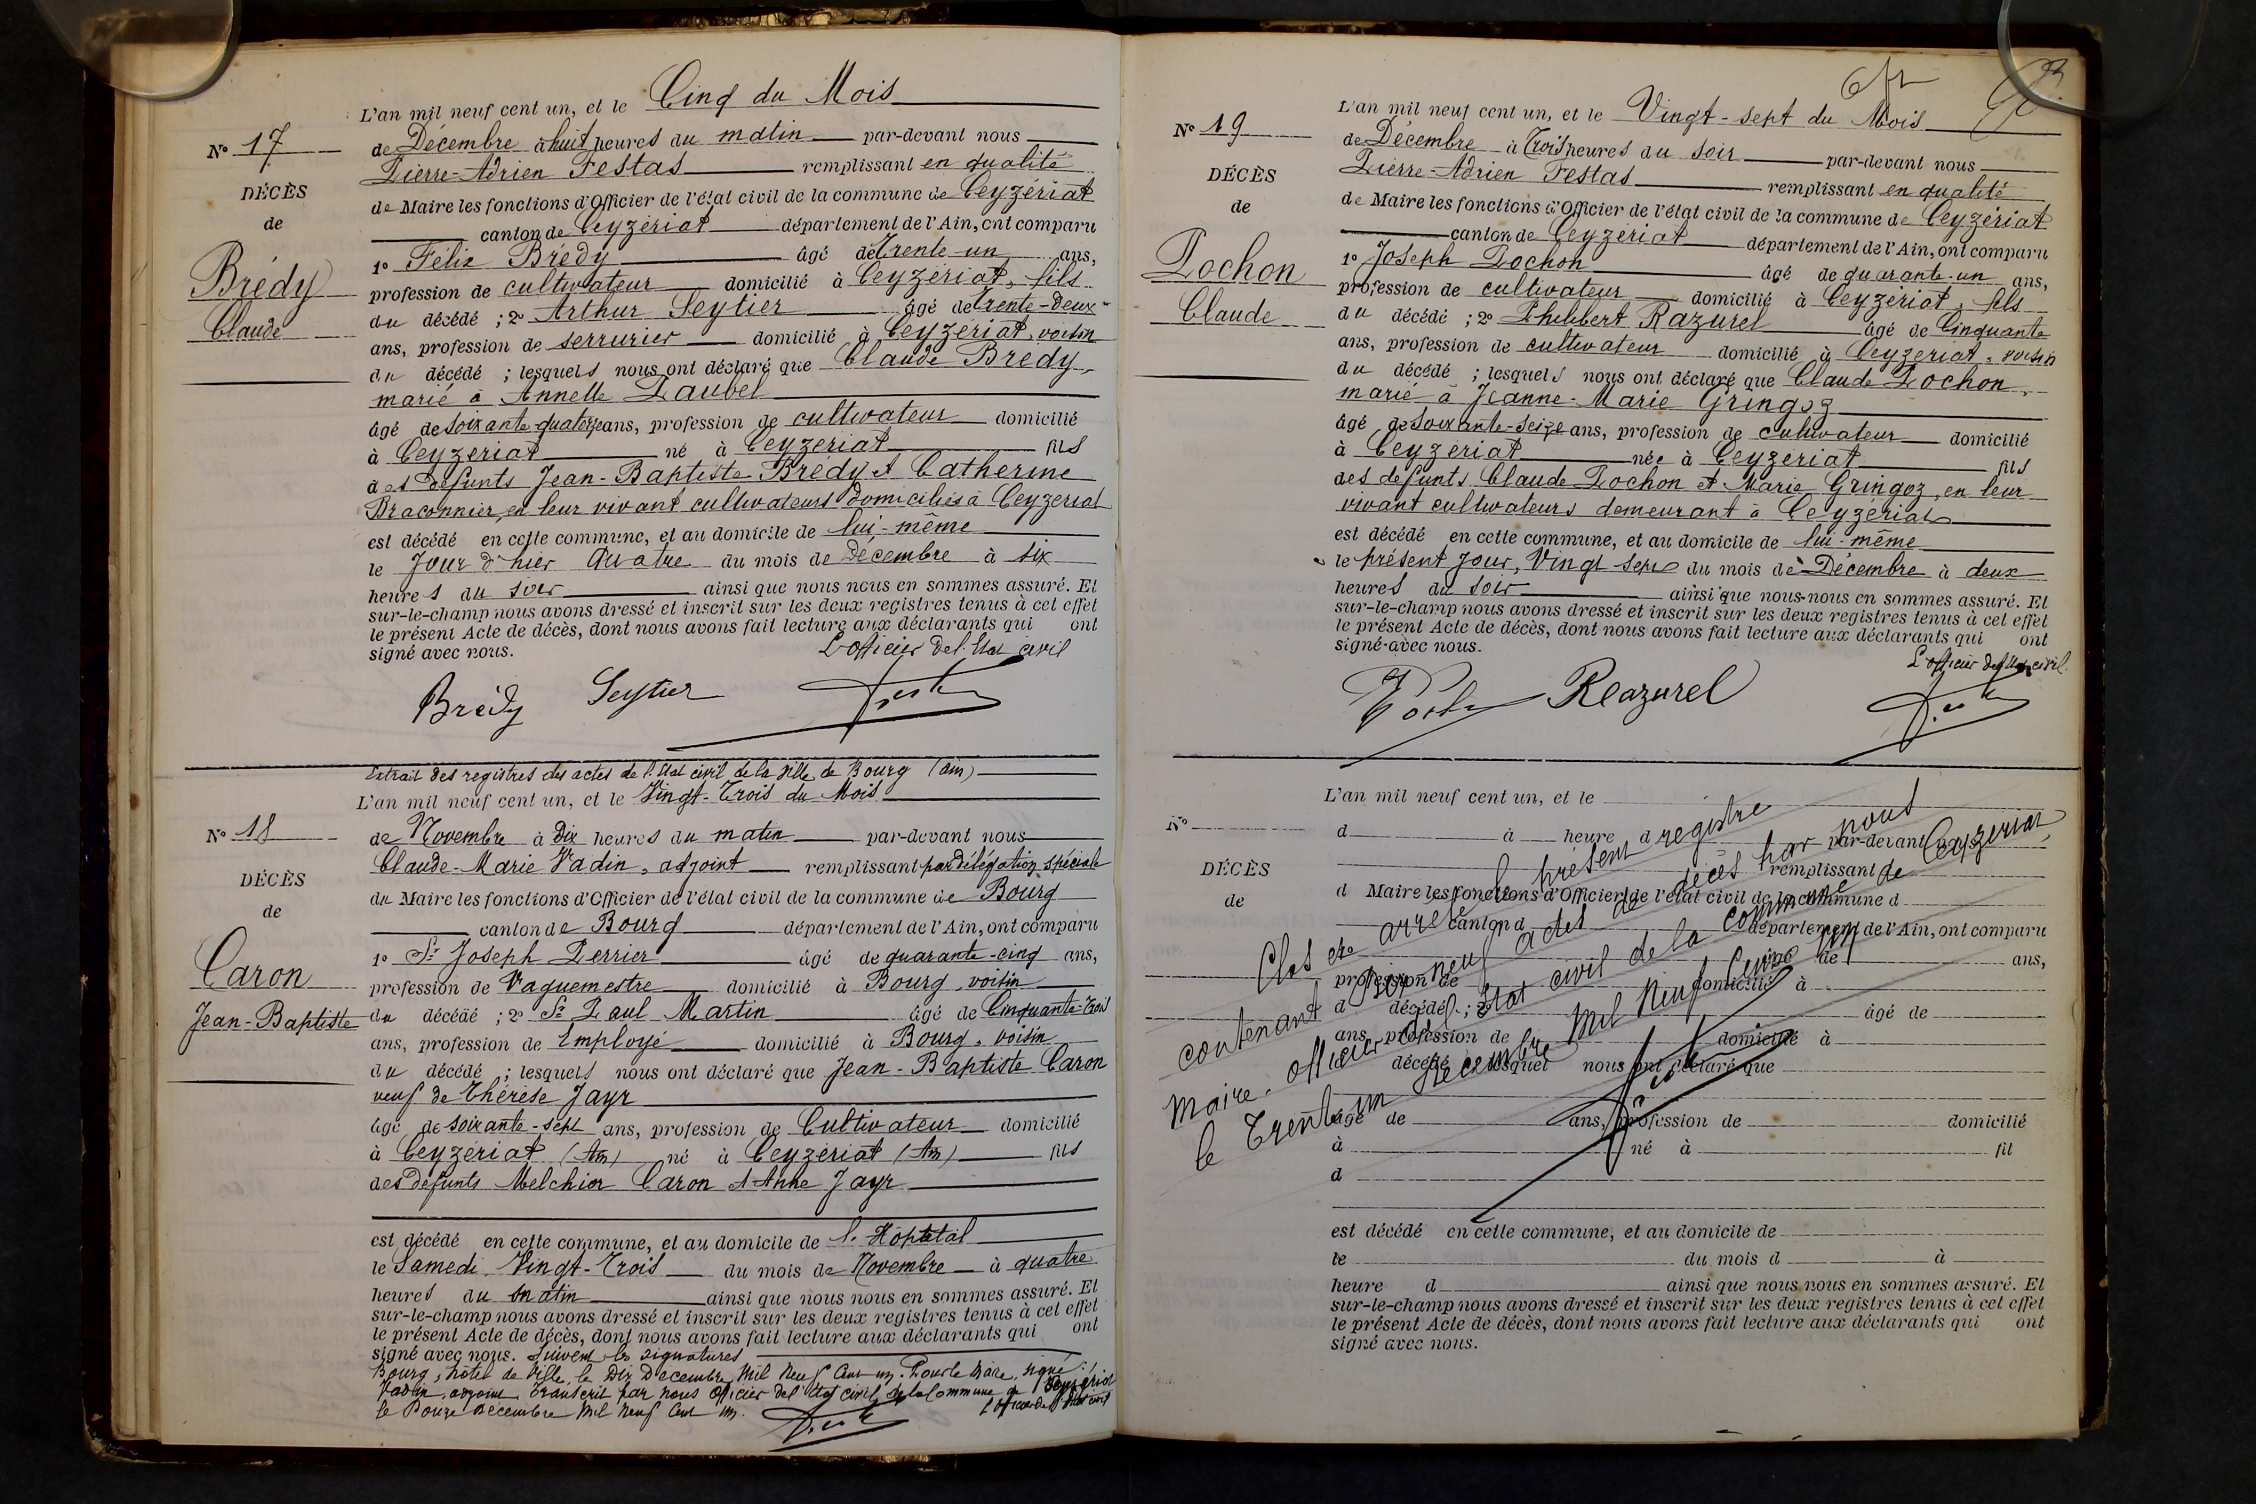 L'an mil neuf cent un, et le Cinq du Mois
N° 17
de Décembre à huit heures du matin par-devant nous
Pierre-Adrien Festas remplissant en qualité
DÉCÈS
de Maire les fonctions d'Officier de l'état civil de la commune de Ceyzériat
de
canton de Ceyzériat département de l'Ain, ont comparu
1° Félix Brédy âgé de Trente-un ans,
Brédy
profession de cultivateur domicilié à Ceyzériat, fils
du décédé ; 2° Arthur Seytier âgé de Trente-Deux
Claude
ans, profession de serrurier domicilié à Ceyzériat, voisin
du décédé ; lesquels nous ont déclaré que Claude Brédy,
marié à Annette Paubel
âgé de soixante-quatorze ans, profession de cultivateur domicilié
à Ceyzériat né à Ceyzériat fils
des défunts Jean-Baptiste Brédy et Catherine
Braconnier, en leur vivant cultivateurs domiciliés à Ceyzériat
est décédé en cette commune, et au domicile de lui-même
le Jour d'hier Quatre du mois de Décembre à six
heures du soir ainsi que nous nous en sommes assuré. Et
sur-le-champ nous avons dressé et inscrit sur les deux registres tenus à cet effet
le présent Acte de décès, dont nous avons fait lecture aux déclarants qui ont
signé avec nous. L'officier de l'Etat civil
Brédy Seytier
Extrait des registres des actes de l'Etat civil de la Ville de Bourg (Ain)
L'an mil neuf cent un, et le Vingt-Trois du Mois
N° 18
de Novembre à Dix heures du matin par-devant nous
Claude-Marie Vadin, adjoint remplissant par délégation spéciale
DÉCÈS
du Maire les fonctions d'Officier de l'état civil de la commune de Bourg
de
canton de Bourg département de l'Ain, ont comparu
1° Sr Joseph Perrier âgé de quarante-cinq ans,
Caron
profession de Vaguemestre domicilié à Bourg, voisin
Jean-Baptiste
du décédé ; 2° Sr Paul Martin âgé de Cinquante-Trois
ans, profession de Employé domicilié à Bourg, voisin
du décédé ; lesquels nous ont déclaré que Jean-Baptiste Caron
veuf de Thérèse Jayr
âgé de soixante-sept ans, profession de Cultivateur domicilié
à Ceyzériat (Ain) né à Ceyzériat (Ain) fils
des défunts Melchior Caron et Anne Jayr
est décédé en cette commune, et au domicile de l'Hôpital
le Samedi Vingt-Trois du mois de Novembre à quatre
heures du matin ainsi que nous nous en sommes assuré. Et
sur-le-champ nous avons dressé et inscrit sur les deux registres tenus à cet effet
le présent Acte de décès, dont nous avons fait lecture aux déclarants qui ont
signé avec nous. Suivent les signatures
Bourg, hôtel de Ville, le Dix Décembre Mil Neuf Cent un. Pour le Maire, signé :
Vadin, adjoint. Transcrit par nous Officier de l'Etat civil de la Commune de Ceyzériat
le Douze Décembre Mil Neuf Cent un. L'officier de l'Etat civil
L'an mil neuf cent un, et le Vingt-sept du Mois
N° 19
de Décembre à Trois heures du soir par-devant nous
Pierre-Adrien Festas remplissant en qualité
DÉCÈS
de Maire les fonctions d'Officier de l'état civil de la commune de Ceyzériat
de
canton de Ceyzériat département de l'Ain, ont comparu
1° Joseph Pochon âgé de quarante-un ans,
Pochon
profession de cultivateur domicilié à Ceyzériat, fils
Claude
du décédé ; 2° Philibert Razurel âgé de Cinquante
ans, profession de cultivateur domicilié à Ceyzériat, voisin
du décédé ; lesquels nous ont déclaré que Claude Pochon,
marié à Jeanne-Marie Gringoz
âgé de soixante-seize ans, profession de cultivateur domicilié
à Ceyzériat née à Ceyzériat fils
des défunts Claude Pochon et Marie Gringoz, en leur
vivant cultivateurs demeurant à Ceyzériat
est décédé en cette commune, et au domicile de lui-même
le présent Jour, Vingt-sept du mois de Décembre à deux
heures du soir ainsi que nous nous en sommes assuré. Et
sur-le-champ nous avons dressé et inscrit sur les deux registres tenus à cet effet
le présent Acte de décès, dont nous avons fait lecture aux déclarants qui ont
signé avec nous. L'officier de l'Etat civil
Razurel
L'an mil neuf cent un, et le
N°
d à heure d par-devant nous
remplissant
DÉCÈS
d Maire les fonctions d'Officier de l'état civil de la commune d
de
canton d département de l'Ain, ont comparu
de ans,
profession de domicilié à
d décédé ; 2° âgé de
ans, profession de domicilié à
d décédé ; lesquel nous ont déclaré que
âgé de ans, profession de domicilié
à né à fil
d
Clos et arrêté le présent registre
contenant Dix neuf actes de décès par nous
Maire, officier de l'état civil de la commune de Ceyzériat,
le Trente un Décembre Mil Neuf Cent un
est décédé en cette commune, et au domicile de
le du mois d à
heure d ainsi que nous nous en sommes assuré. Et
sur-le-champ nous avons dressé et inscrit sur les deux registres tenus à cet effet
le présent Acte de décès, dont nous avons fait lecture aux déclarants qui ont
signé avec nous.